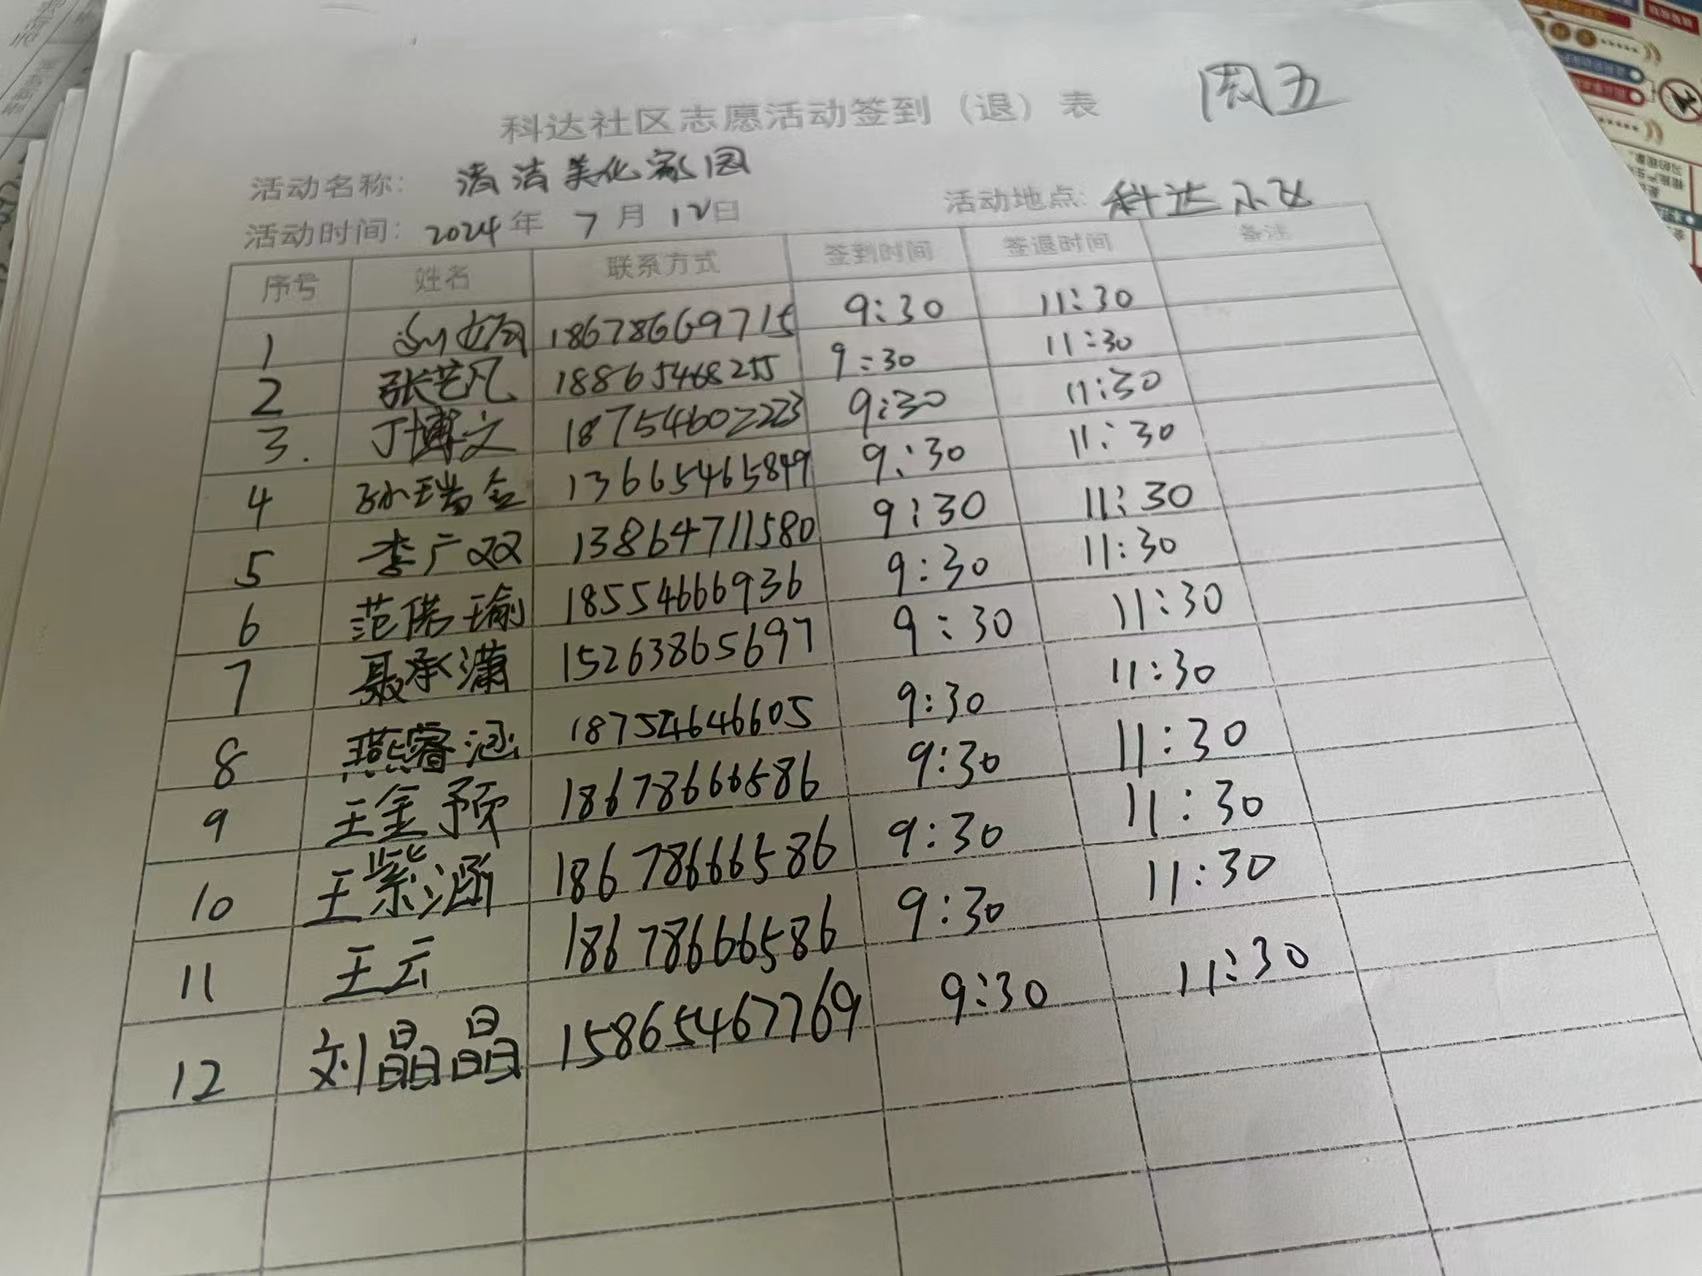 周五
科达社区志愿活动签到（退）表
活动名称： 清洁美化家园
活动时间：2024年 7月12日 活动地点：科达小区
序号 姓名 联系方式 签到时间 签退时间 备注
1 18678669715 9:30 11:30
2 张艺凡 18865468255 9:30 11:30
3. 丁博文 18754602223 9:30 11:30
4 孙瑞金 13665465849 9:30 11:30
5 李广双 13864711580 9:30 11:30
6 范偌瑜 18554666936 9:30 11:30
7 聂承潇 15263865697 9:30 11:30
8 燕睿涵 18754646605 9:30 11:30
9 王金予 18678666586 9:30 11:30
10 王紫涵 18678666586 9:30 11:30
11 王云 18678666586 9:30 11:30
12 刘晶晶 15865467769 9:30 11:30